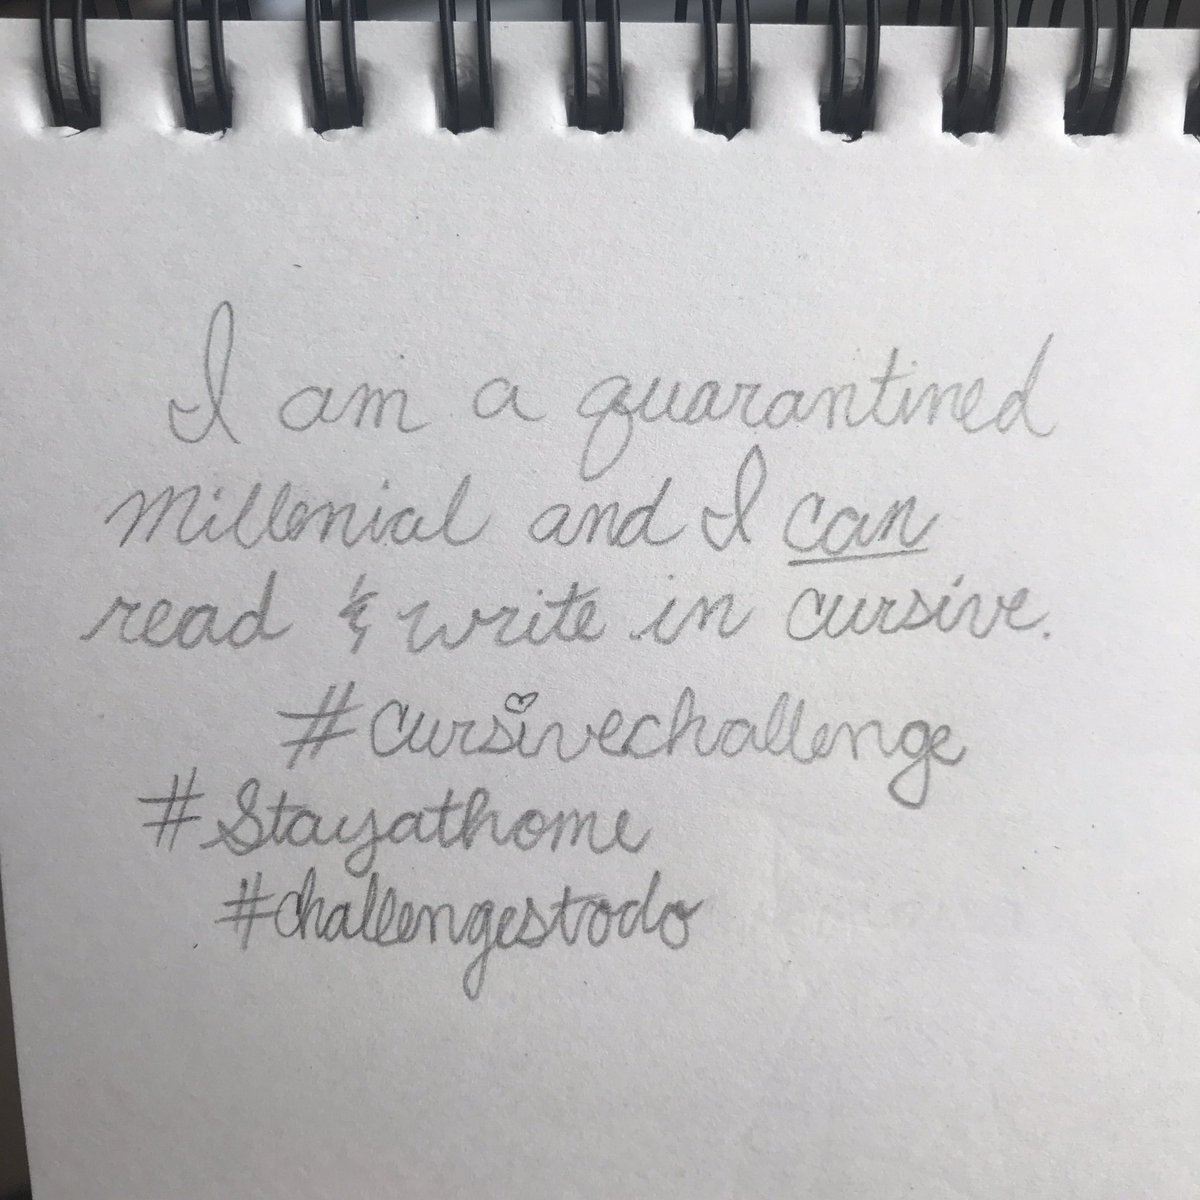 I am a quarantined
millenial and I can
read & write in cursive.
#cursivechallenge
#Stayathome
#challengestodo